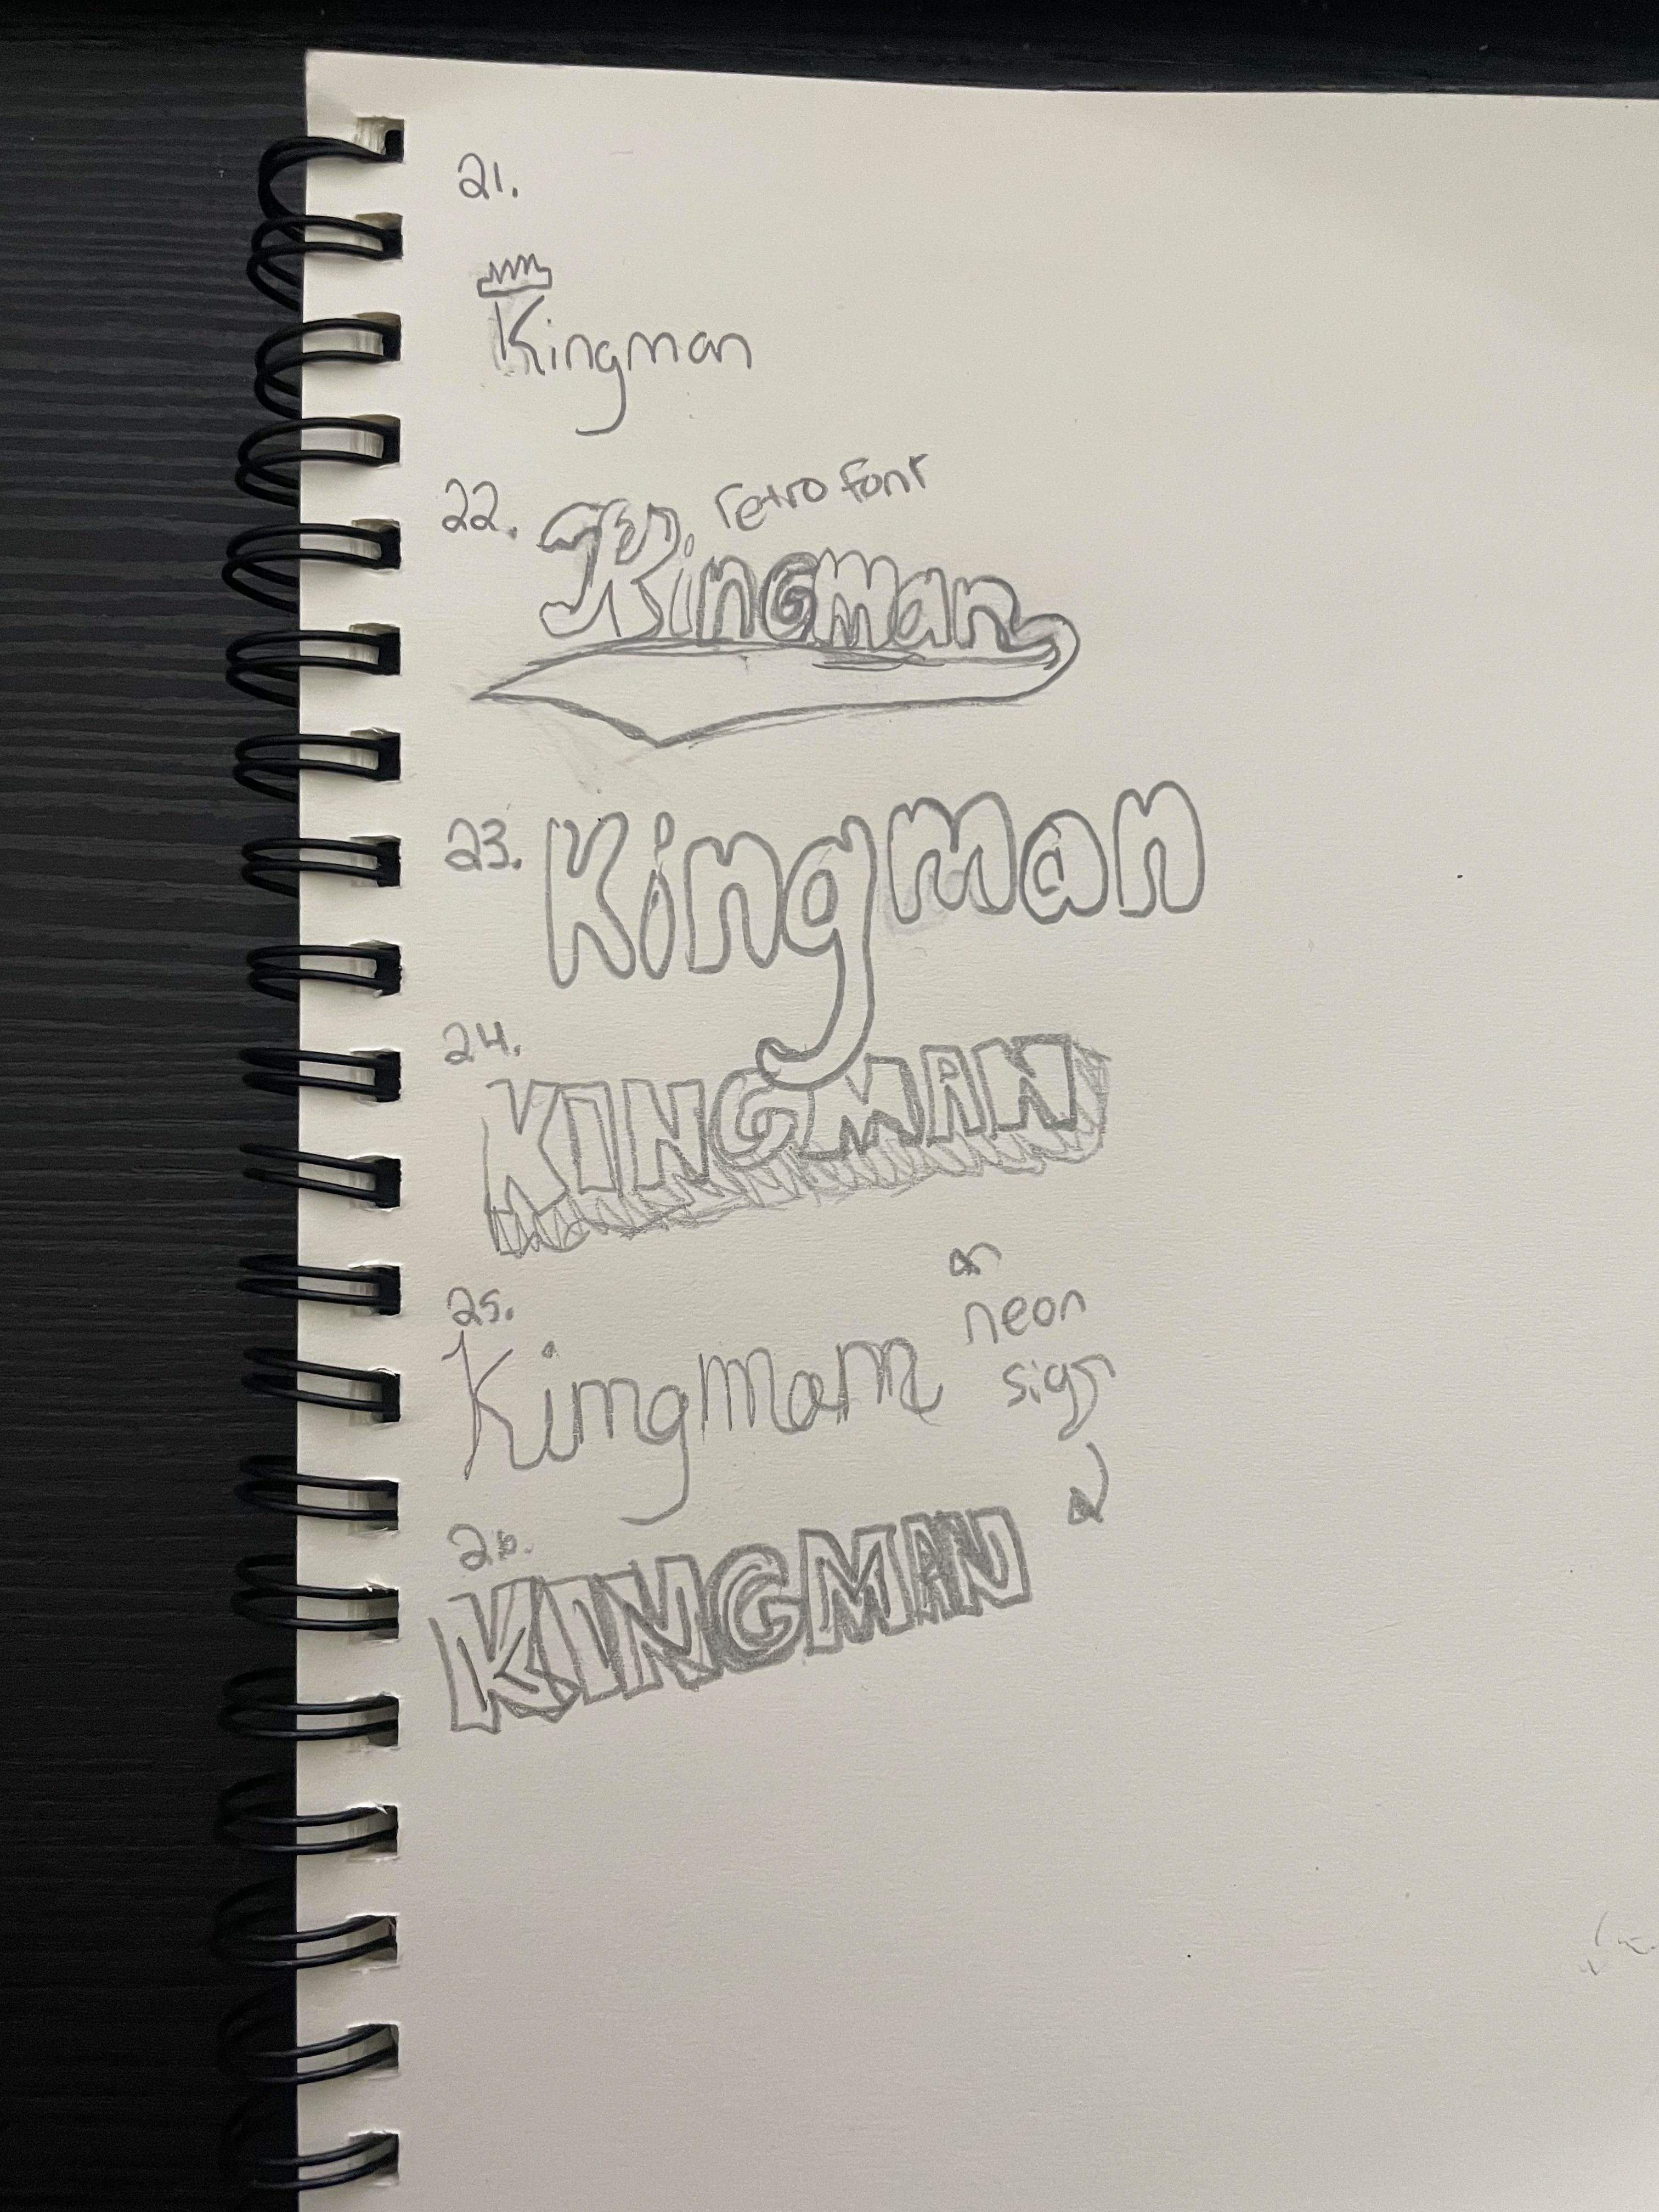 21.
Kingman
22. retro font
Kingman
23. Kingman
24.
KINGMAN
25.
Kingman
neon
sign
26.
KINGMAN